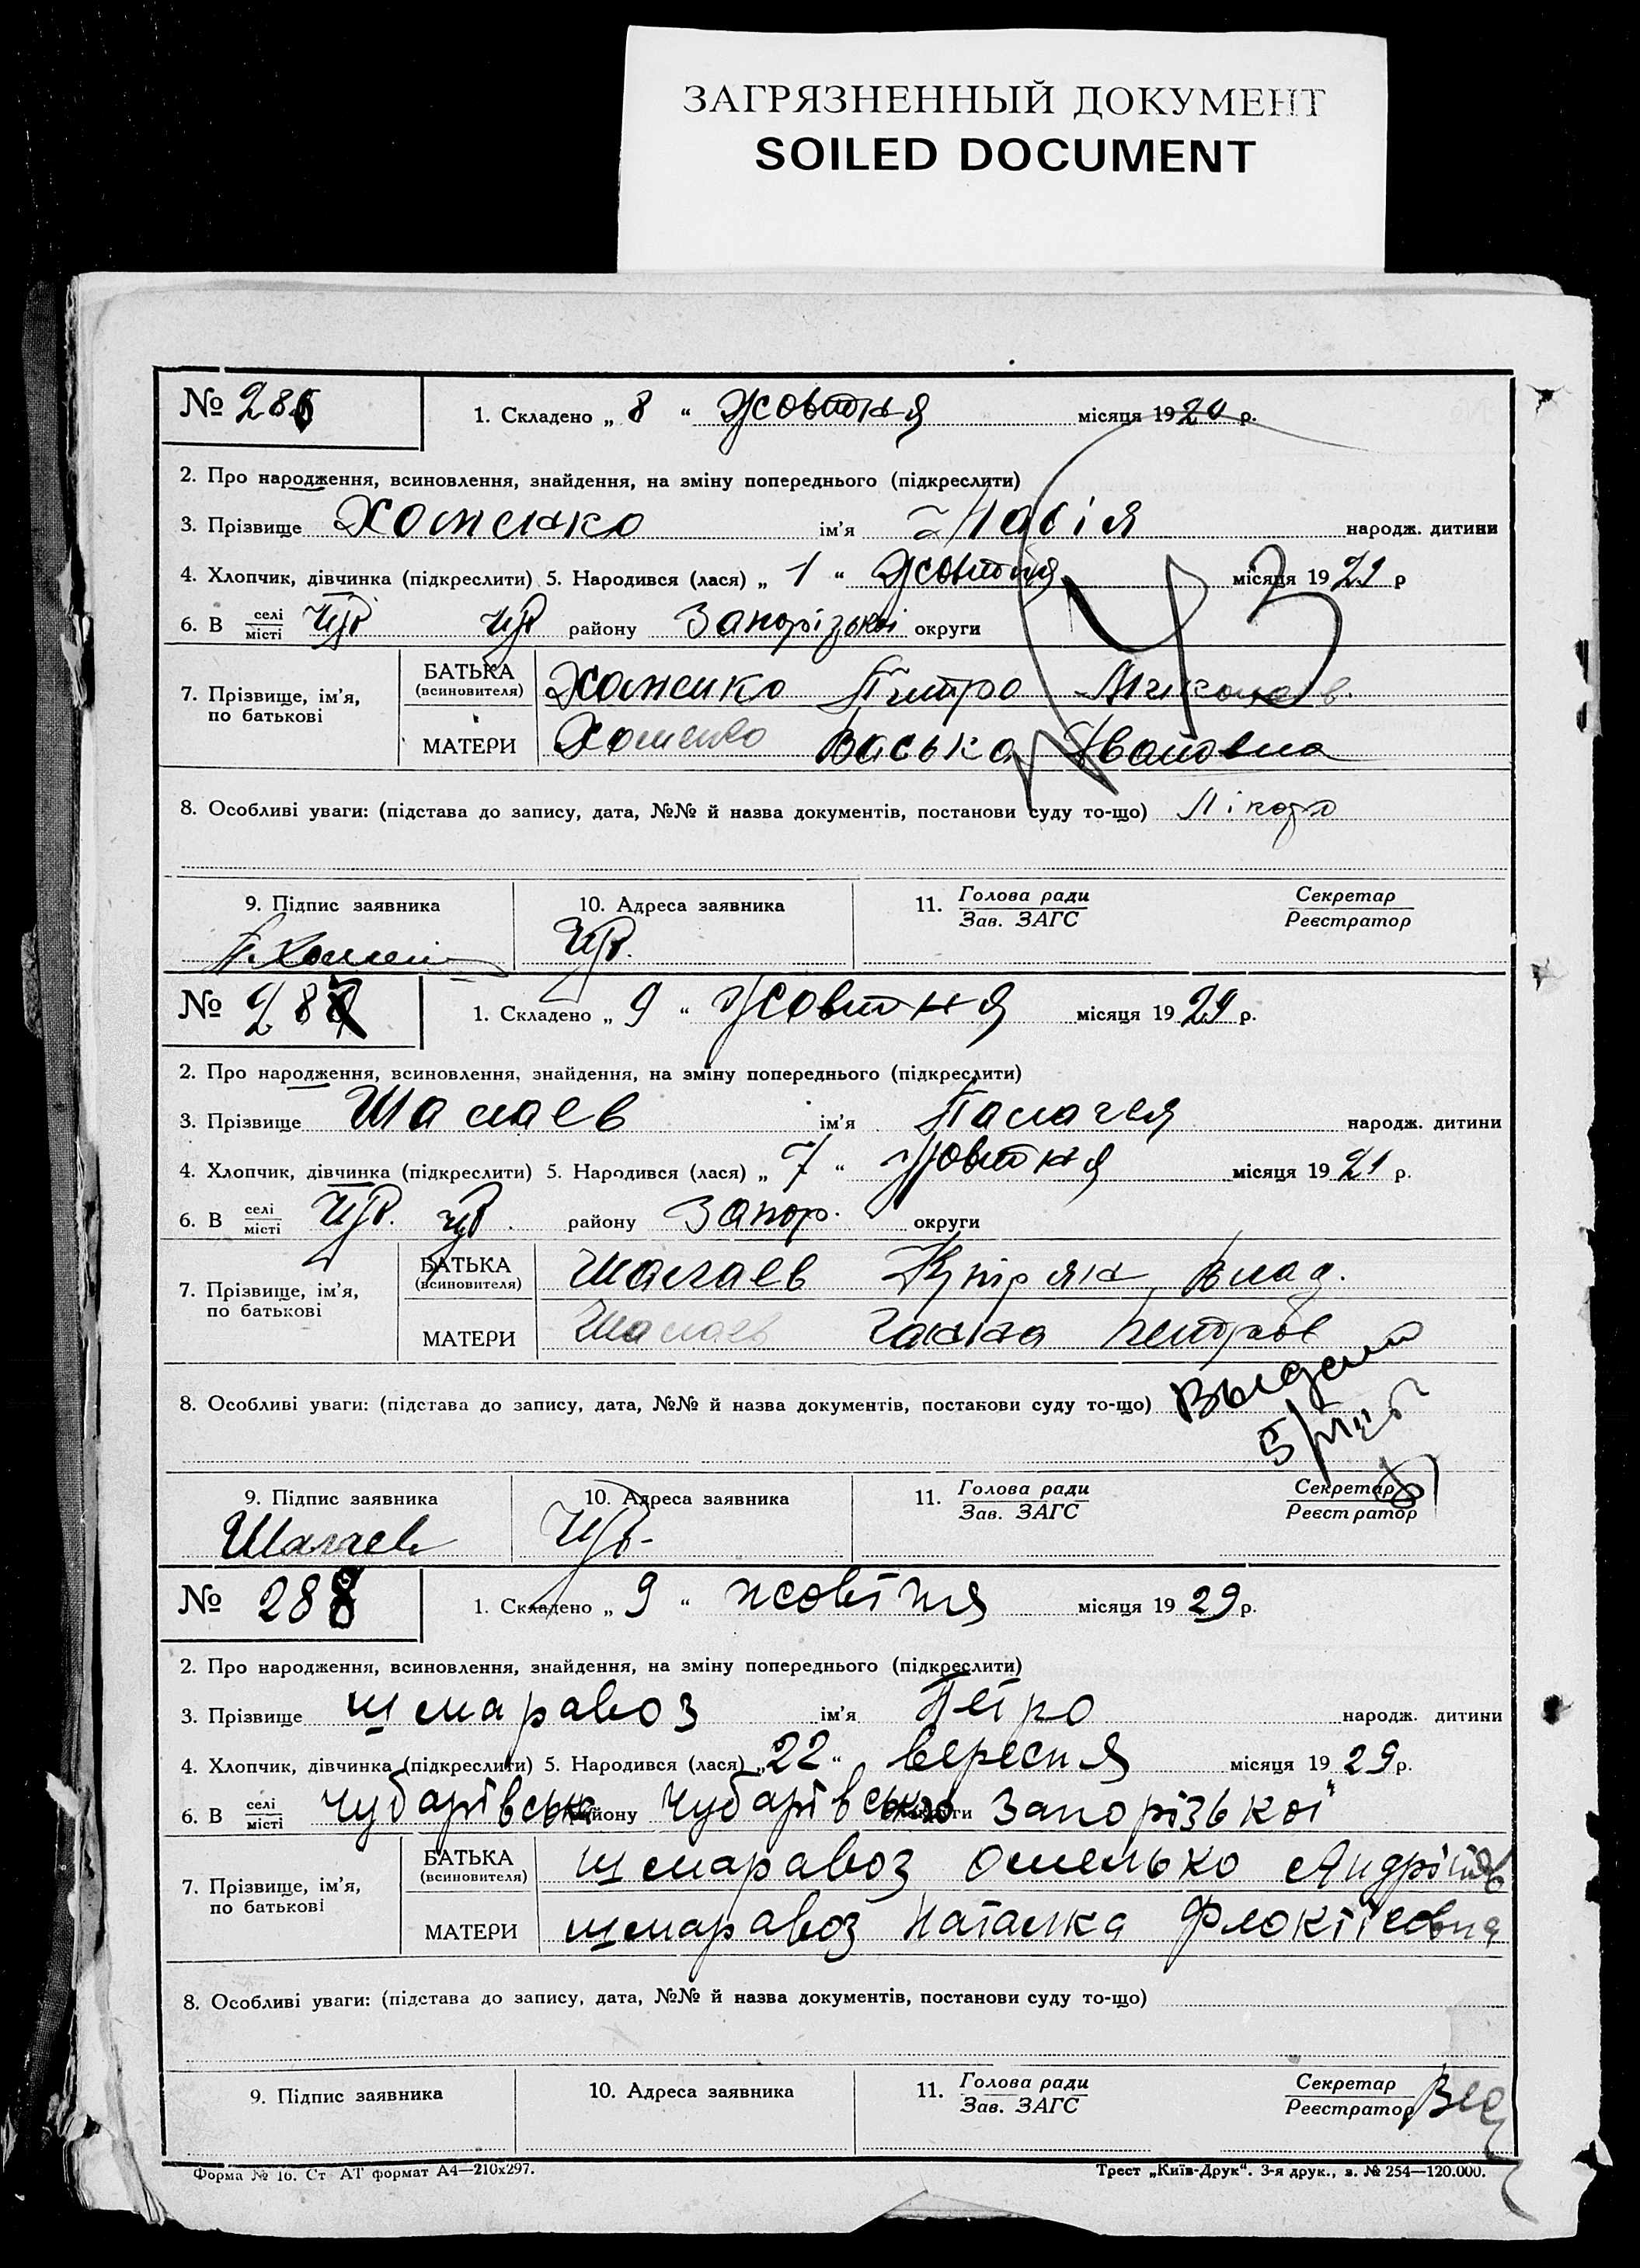 ЗАГРЯЗНЕННЫЙ ДОКУМЕНТ
SOILED DOCUMENT
№ 286 1. Складено „ 8 “ Жовтня місяця 19 29 р.
2. Про народження, всиновлення, знайдення, на зміну попереднього (підкреслити)
3. Прізвище Хоменко ім'я народж. дитини
4. Хлопчик, дівчинка (підкреслити) 5. Народився (лася) „ 1 “ Жовтня місяця 19 29 р
6. В селі місті Чуб Чуб району Запорізької округи
7. Прізвище, ім'я, по батькові
БАТЬКА (всиновителя) Хоменко Петро Миколаєв.
МАТЕРИ Хоменко Васька Ивановна
8. Особливі уваги: (підстава до запису, дата, №№ й назва документів, постанови суду то-що)
9. Підпис заявника 10. Адреса заявника 11. Голова ради Зав. ЗАГС Секретар Реєстратор
Чуб.
№ 287 1. Складено „ 9 “ Жовтня місяця 19 29 р.
2. Про народження, всиновлення, знайдення, на зміну попереднього (підкреслити)
3. Прізвище Шалаев ім'я Палагея народж. дитини
4. Хлопчик, дівчинка (підкреслити) 5. Народився (лася) „ 7 “ Жовтня місяця 19 29 р.
6. В селі місті Чуб. Чуб. району Запор. округи
7. Прізвище, ім'я, по батькові
БАТЬКА (всиновителя) Шалаев Купріян Влад.
МАТЕРИ Шалаев Ганна Петров
8. Особливі уваги: (підстава до запису, дата, №№ й назва документів, постанови суду то-що) Выдан
9. Підпис заявника 10. Адреса заявника 11. Голова ради Зав. ЗАГС Секретар Реєстратор
Шалаев Чуб.
№ 288 1. Складено „ 9 “ жовтня місяця 19 29 р.
2. Про народження, всиновлення, знайдення, на зміну попереднього (підкреслити)
3. Прізвище шмаравоз ім'я Петро народж. дитини
4. Хлопчик, дівчинка (підкреслити) 5. Народився (лася) „ 22 “ вересня місяця 19 29 р.
6. В селі місті Чубарівська району Чубарівсько округи Запорізької
7. Прізвище, ім'я, по батькові
БАТЬКА (всиновителя) шмаравоз Омелько
МАТЕРИ шмаравоз Наталка
8. Особливі уваги: (підстава до запису, дата, №№ й назва документів, постанови суду то-що)
9. Підпис заявника 10. Адреса заявника 11. Голова ради Зав. ЗАГС Секретар Реєстратор
Форма № 16. Ст АТ формат А4—210x297. Трест „Київ-Друк“. 3-я друк., з. № 254—120.000.